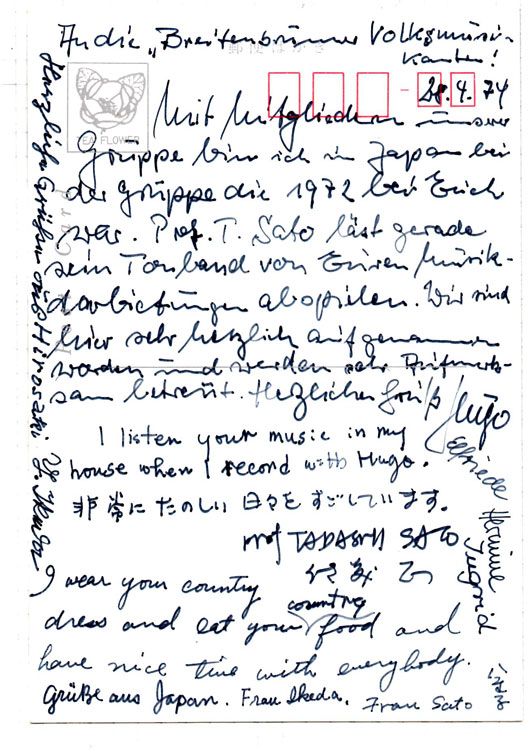 An die „Breitenbrunner Volksmusi-
kanten!
郵便はがき
28.4.74
TEA FLOWER
Mit Mitgliedern unserer
Gruppe bin ich in Japan bei
der Gruppe die 1972 bei Euch
war. Prof. T. Sato läst gerade
sein Tonband von Euren Musik-
darbietungen abspielen. Wir sind
hier sehr herzlich aufgenommen
worden und werden sehr aufmerk-
sam betreut. Herzlicher Gruß Hugo
Elfriede
Hermine
Ingrid
I listen your music in my
house when I record with Hugo.
非常にたのしい日々をすごしています。
Prof TADASHI SATO
I wear your country
dress and eat your country food and
have nice time with everybody.
Grüße aus Japan. Frau Ikeda. Frau Sato
Herzliche Grüße aus Hirosaki. Y. Ikeda